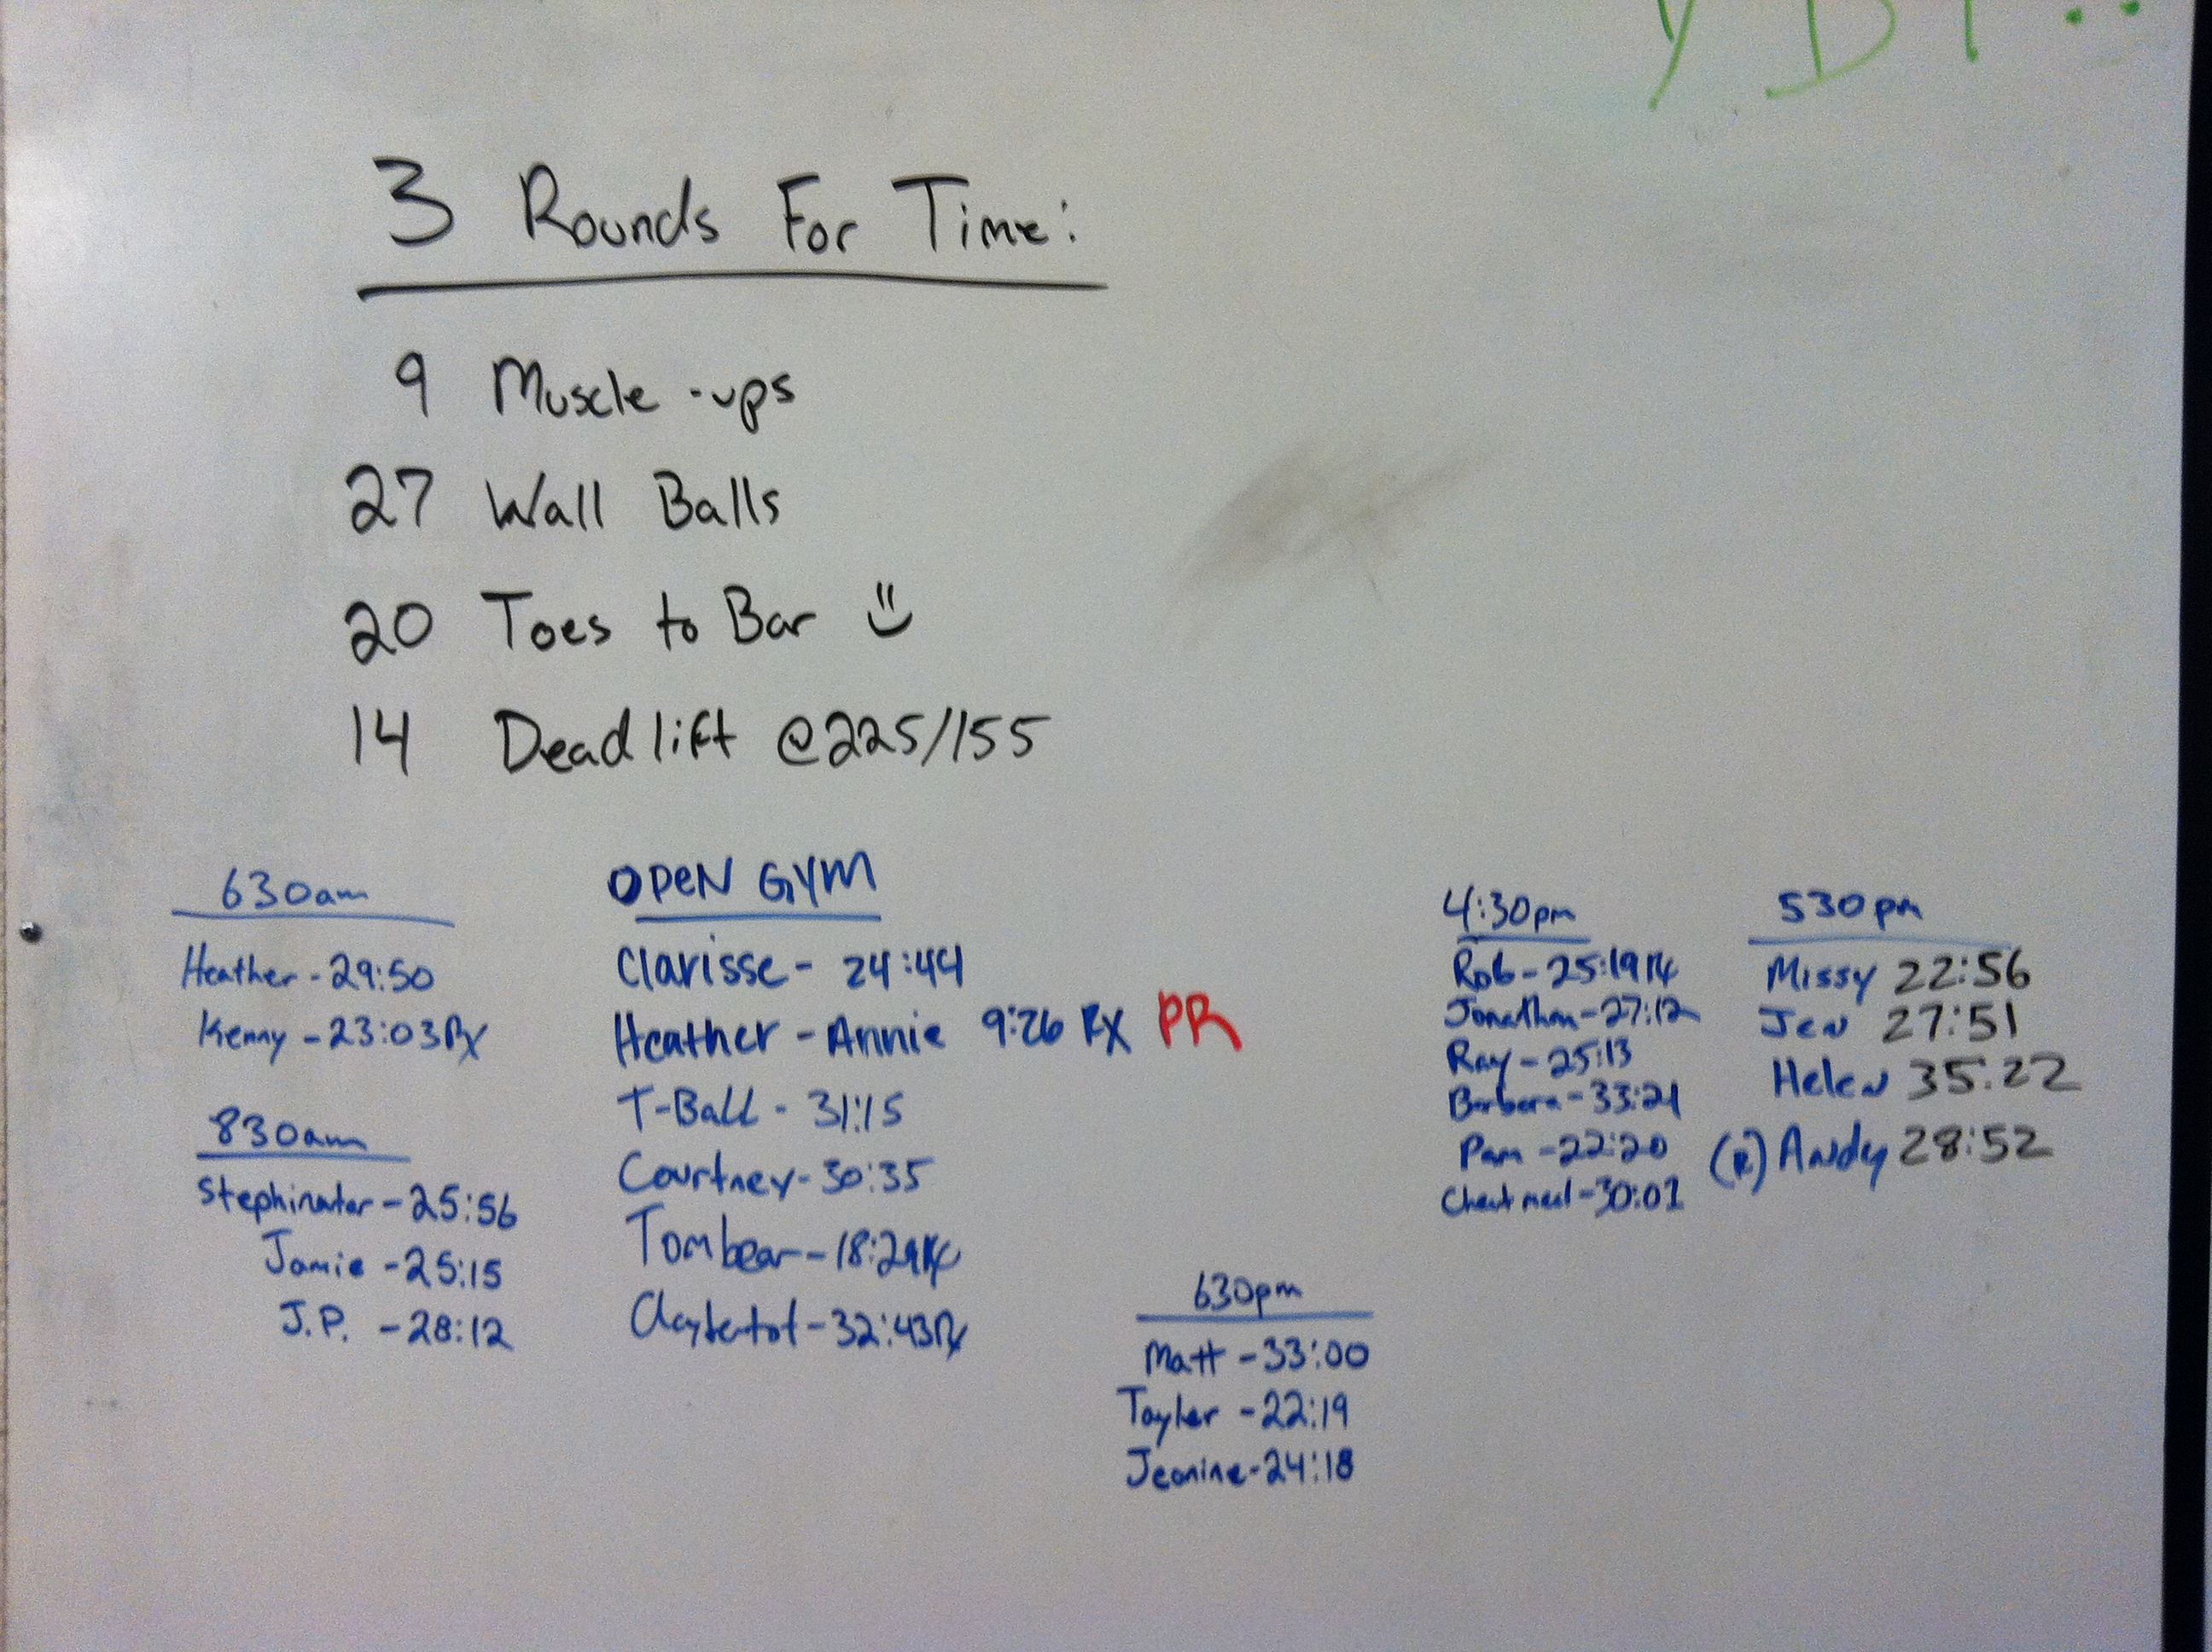 3 Rounds For Time:
9 Muscle-ups
27 Wall Balls
20 Toes to Bar
14 Deadlift @225/155
630am
Heather - 29:50
Kenny - 23:03 Rx
830am
Stephinator - 25:56
Jamie - 25:15
J.P. - 28:12
OPEN GYM
Clarisse - 24:44
Heather - Annie 9:26 RX PR
T-Ball - 31:15
Courtney - 30:35
Tombear - 18:29 Rx
Claytertot - 32:43 Rx
630pm
Matt - 33:00
Tayler - 22:19
Jeanine - 24:18
4:30pm
Rob - 25:19 Rx
Jonathan - 27:12
Ray - 25:13
Barbara - 33:21
Pam - 22:20
Cheat meal - 30:01
530pm
Missy 22:56
Jen 27:51
Helen 35:22
Andy 28:52